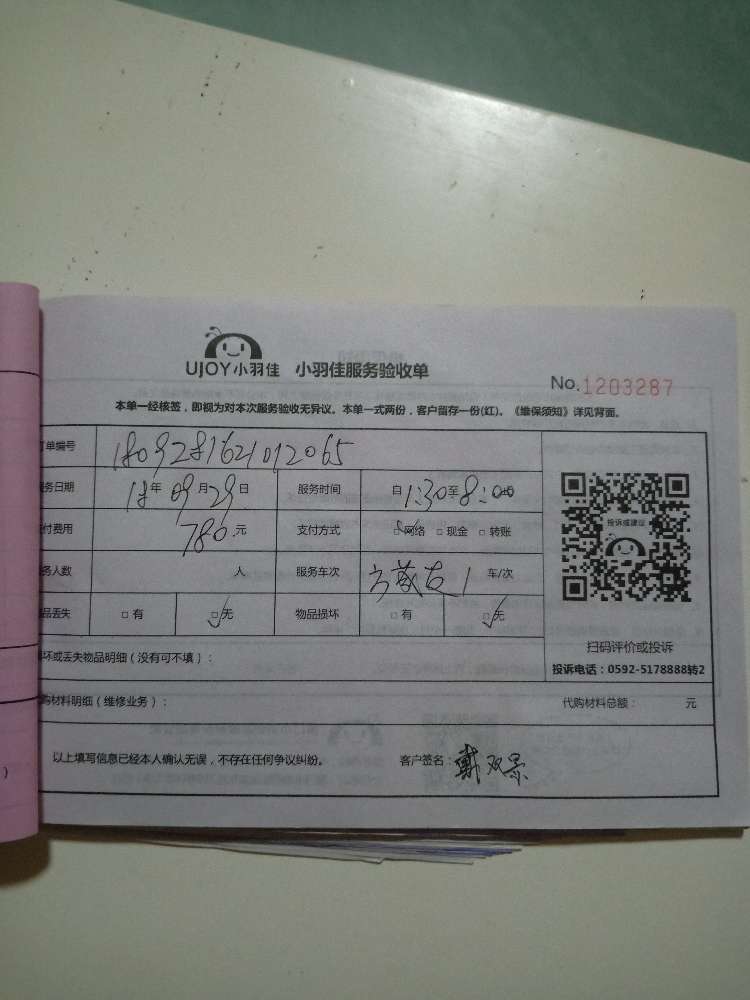 UJOY小羽佳 小羽佳服务验收单
No.1203287
本单一经核签，即视为对本次服务验收无异议。本单一式两份，客户留存一份(红)。《维保须知》详见背面。
订单编号 1809281621012065
务日期 18年09月29日 服务时间 自1:30至8:00
付费用 780元 支付方式 □网络 □现金 □转账
务人数 人 服务车次 1 车/次
品丢失 □有 □无 物品损坏 □有 □无
投诉或建议
扫码评价或投诉
投诉电话：0592-5178888转2
坏或丢失物品明细（没有可不填）：
购材料明细（维修业务）： 代购材料总额： 元
以上填写信息已经本人确认无误，不存在任何争议纠纷。 客户签名：戴双景